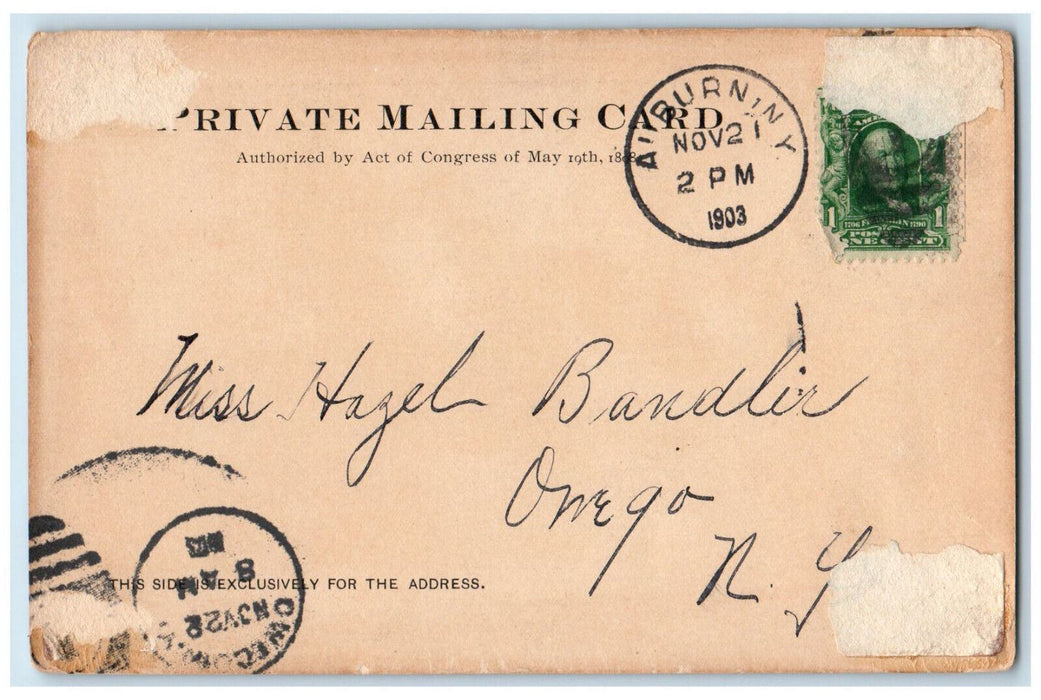 PRIVATE MAILING CARD
Authorized by Act of Congress of May 19th, 1898
AUBURN, N.Y.
NOV 21
2 PM
1903
1 1706 FRANKLIN 1790 1
Miss Hazel Bandler
Owego
N. Y
THIS SIDE IS EXCLUSIVELY FOR THE ADDRESS.
8 AM
NOV 22
OWEGO